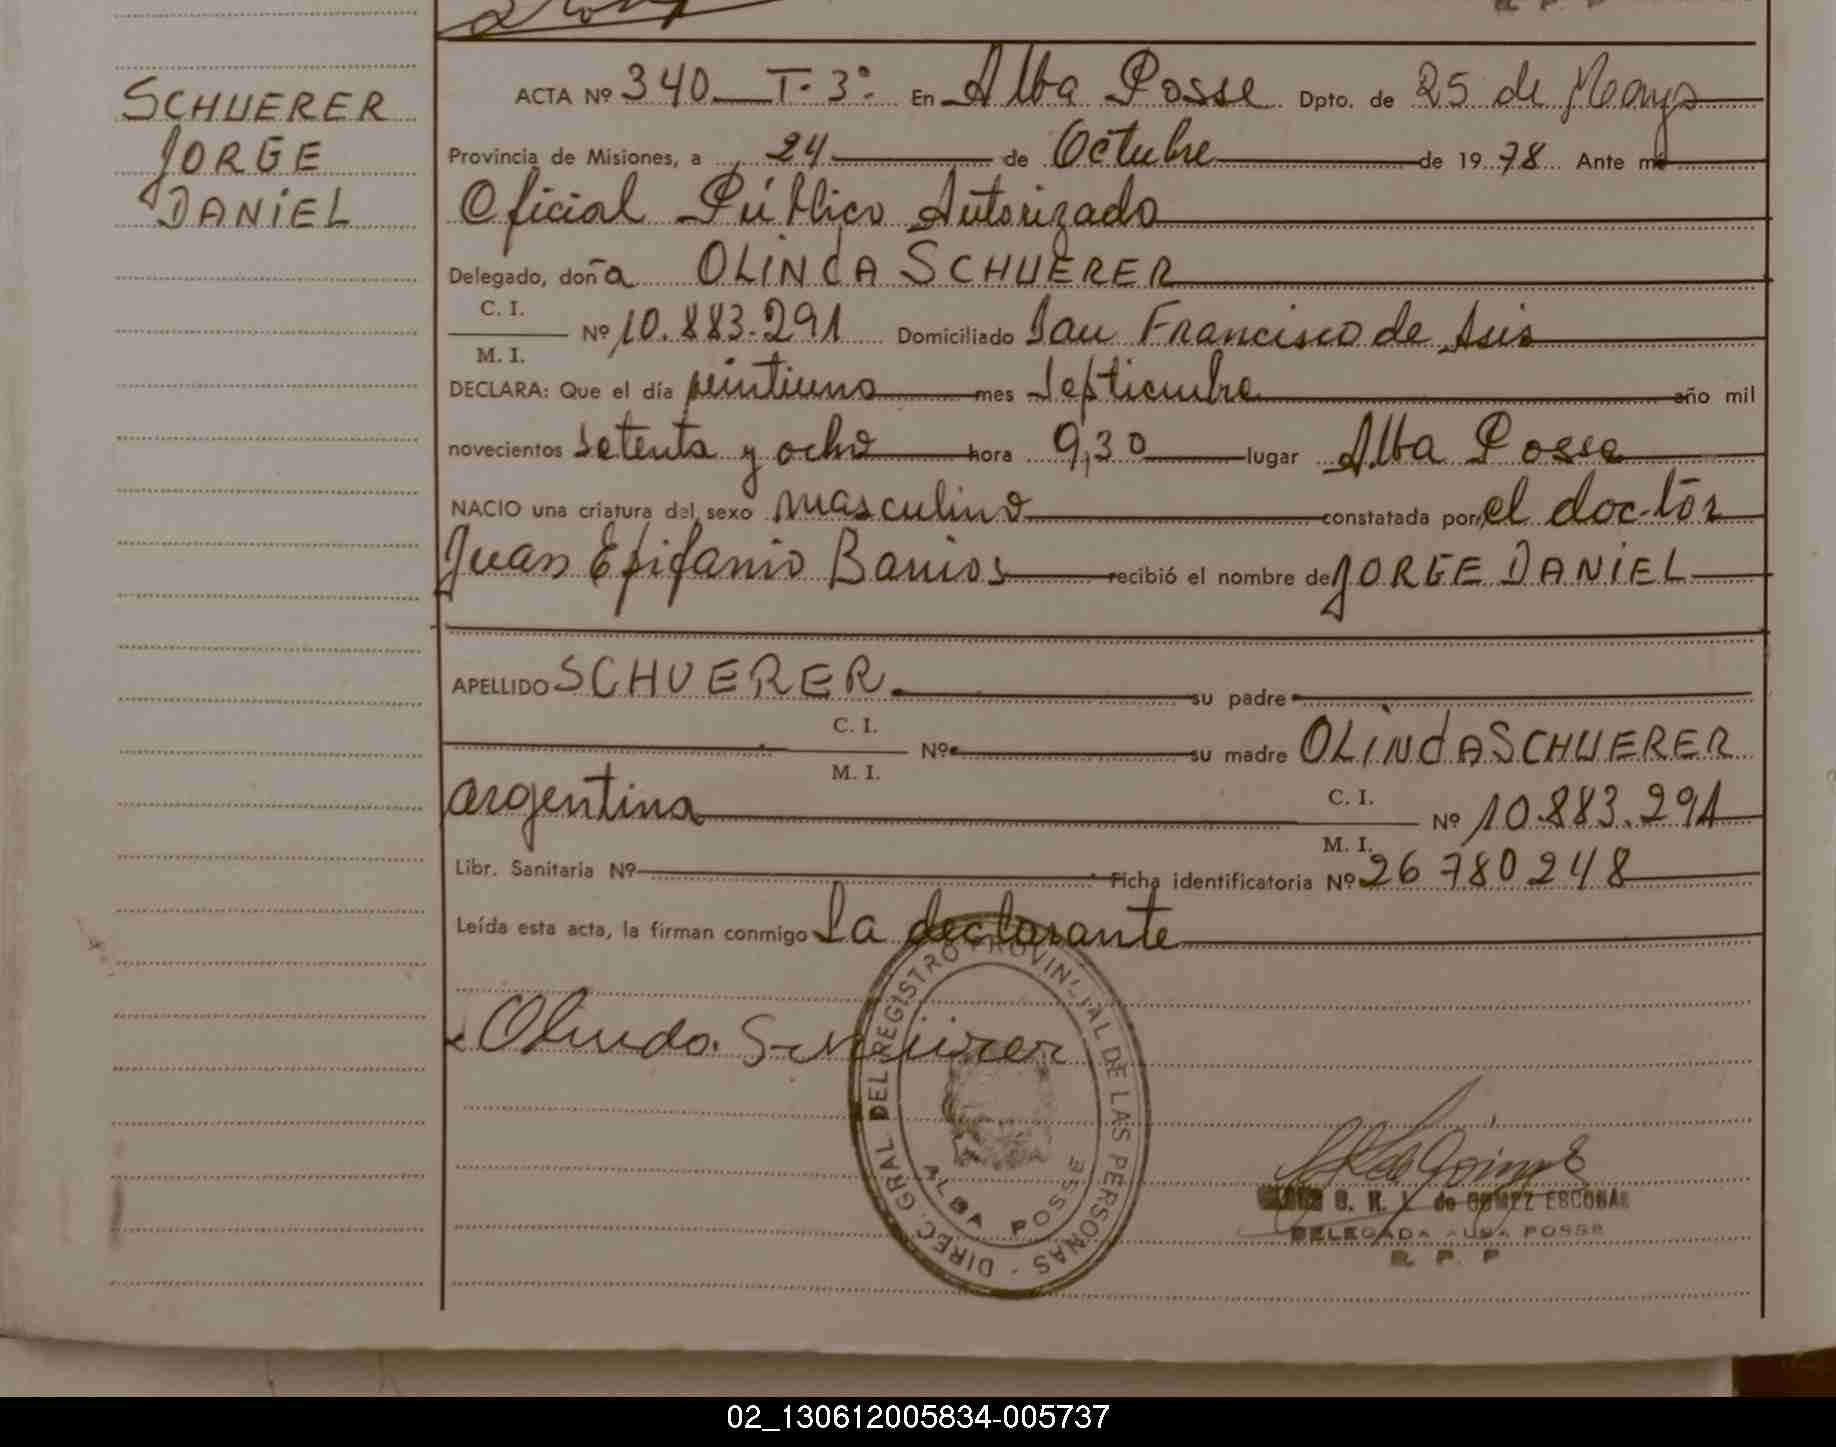 SCHUERER
JORGE
DANIEL
ACTA Nº 340 T. 3º En Alba Posse Dpto. de 25 de Mayo
Provincia de Misiones, a 24 de Octubre de 1978 Ante mi
Oficial Público Autorizado
Delegado, doña OLINdA SCHUERER
C. I.
M. I.
Nº 10.883.291 Domiciliado San Francisco de Asis
DECLARA: Que el día veintiuno mes Septiembre año mil
novecientos setenta y ocho hora 9,30 lugar Alba Posse
NACIO una criatura del sexo masculino constatada por el doctor
Juan Epifanio Barrios recibió el nombre de JORGE DANIEL
APELLIDO SCHUERER su padre
C. I.
M. I.
Nº su madre OLINdA SCHUERER
argentina
C. I.
M. I.
Nº 10.883.291
Libr. Sanitaria Nº Ficha identificatoria Nº 26780248
Leída esta acta, la firman conmigo la declarante
Olinda
DIREC. GRAL DEL REGISTRO PROVINCIAL DE LAS PERSONAS
ALBA POSSE
de GOMEZ ESCOBAR
DELEGADA ALBA POSSE
R. P. P
02_130612005834-005737